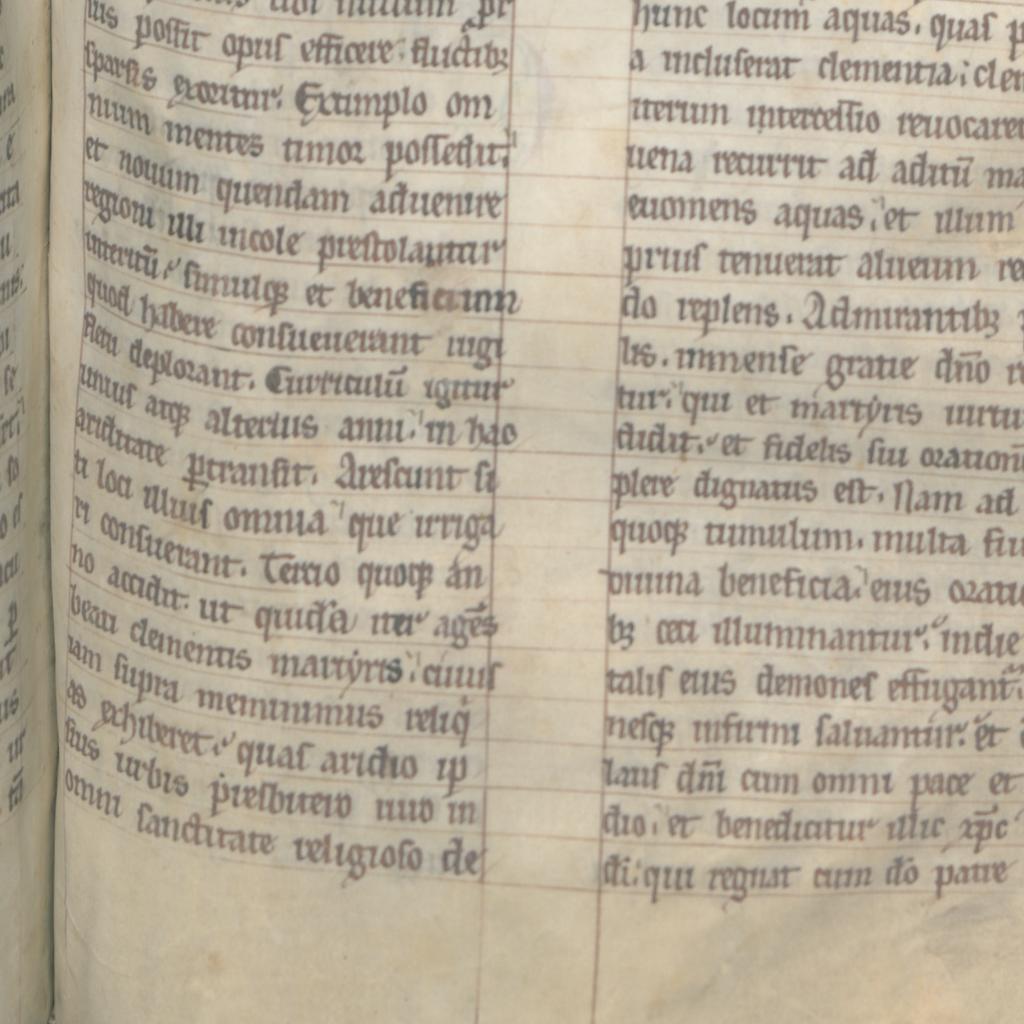 ius possit opus efficere. fluctibꝫ
sparsis exoritur. Extimplo om
nium mentes timor possedit.
et nouum quendam aduenire
regioni illi incole prestolantur
interitū. simulqꝫ et beneficium
quod habere consueuerant iugi
fletu deplorant. Curriculū igitur
unius atqꝫ alterius anni. in hac
ariditate ꝑtransiit. Arescunt si
ti loci illius omnia que irriga
ri consuerant. Tercio quoqꝫ an
no accidit. ut quidā iter agēs
beati clementis martyris. cuius
iam supra meminimus reliq
as exhiberet. quas aridio ip
sius urbis presbitero uiro in
omni sanctitate religioso de
hunc locum aquas. quas
a incluserat clementia. cle
iterum intercessio reuocare
uena recurrit ad aditū ma
euomens aquas. et illum
prius tenuerat alueum re
do replens. Admirantibꝫ
lis. inmense gratie dño
tur. qui et martyris uirtu
didit. et fidelis sui oration
plere dignatus est. Nam ad
quoqꝫ tumulum. multa fiu
diuina beneficia. eius oratu
bꝫ ceci illuminantur. indie
talis eius demones effugant.
nesqꝫ infirmi saluantur. et
laus dñi cum omni pace et
dio. et benedicitur illic xp̄c
di. qui regnat cum dō patre